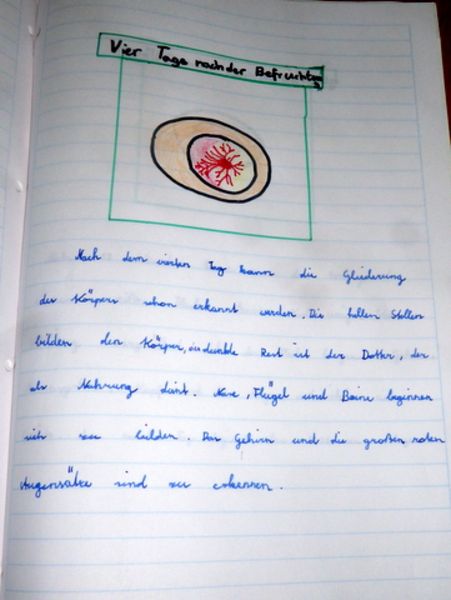 Vier Tage nach der Befruchtung
Nach dem vierten Tag kann die Gliederung
des Körpers schon erkannt werden. Die hellen Stellen
bilden den Körper, der dunkle Rest ist der Dotter, der
als Nahrung dient. Nase, Flügel und Beine beginnen
sich zu bilden. Das Gehirn und die großen roten
Augensätze sind zu erkennen.